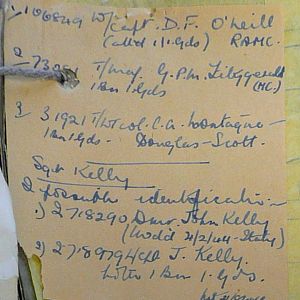 1. 106849 W/Capt. D.F. O'Neill
(att'd 1/I. Gds) RAMC.
2 73081 T/Maj G.P.M. FitzGerald
1 Bn I. Gds (MC.)
3 31921 T/Lt Col. C.A. Montagu-
1 Bn I. Gds. - Douglas-Scott.
Sgt Kelly
2 possible identifications-
1) 2718290 Gdsm. John Kelly
(Wd'd 21/2/44 - Italy)
2) 2718979 J. Kelly.
1 Bn I. Gds.